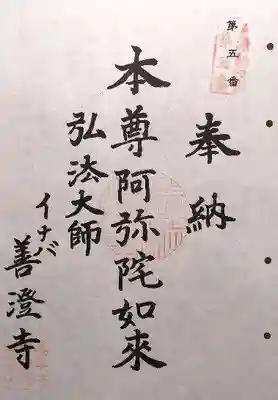 第五番
奉納
本尊阿弥陀如來
弘法大師
イナバ
善澄寺